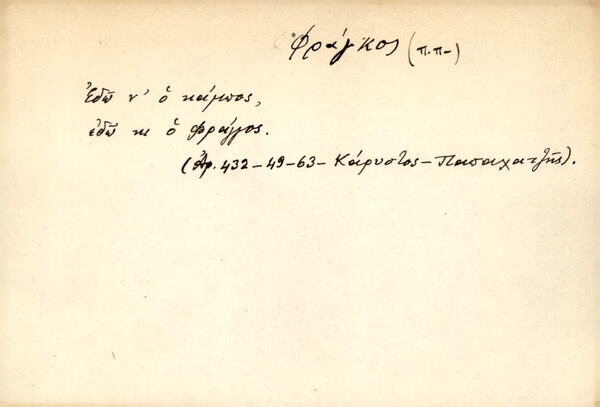 Φράγκος (π.π-)
Ἐδῶ ν' ὁ κάμπος,
ἐδῶ κι ὁ Φράγγος.
(Ἀρ. 432-49-63- Κάρυστος - Παπαχατζῆς).